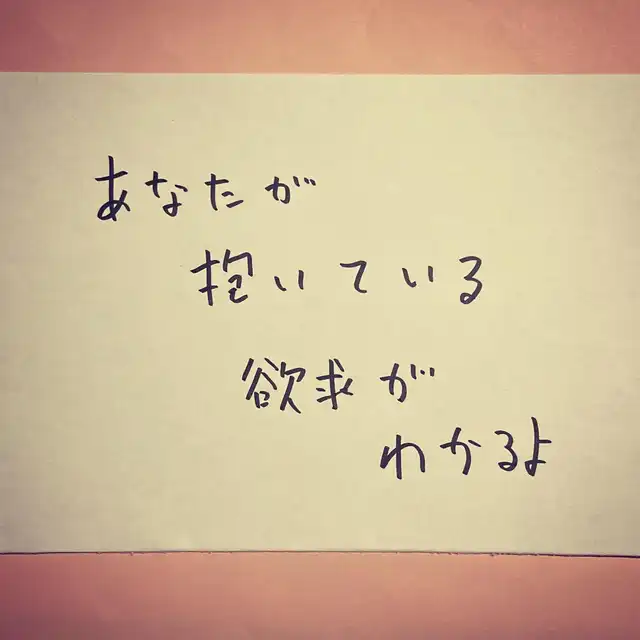 あなたが
抱いている
欲求が
わかるよ